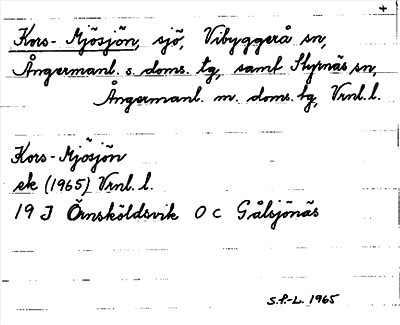 Kors-Mjösjön, sjö, Vibyggerå sn,
Ångermanl. s. doms. tg, samt Styrnäs sn,
Ångermanl. m. doms. tg, Vrnl. l.
Kors-Mjösjön
ek (1965) Vrnl. l.
19 J Örnsköldsvik O C Gålsjönäs
S.f.-L. 1965